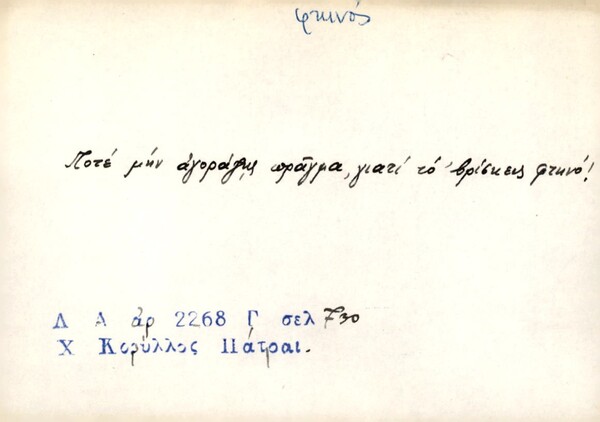 φτηνός
Ποτέ μήν ἀγοράζῃς πρᾶγμα, γιατί τό βρίσκεις φτηνό!
Λ Α ἀρ 2268 Γ σελ 730
Χ Κορύλλος Πάτραι.